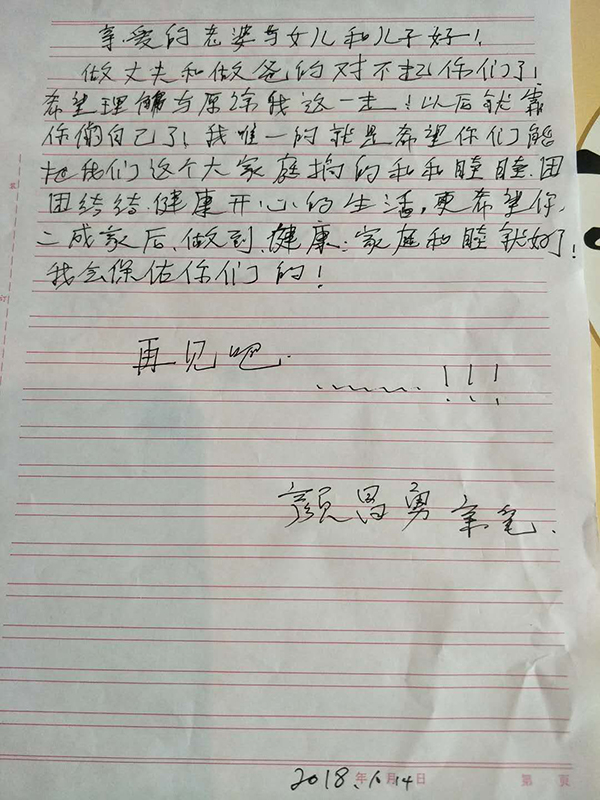 亲爱的老婆与女儿和儿子好！
做丈夫和做爸的对不起你们了！
希望理解与原谅我这一走！以后就靠
你俩自己了！我唯一的就是希望你们能
把我们这个大家庭搞的和和睦睦.团
团结结.健康开心的生活,更希望你
二成家后、做到、健康；家庭和睦就好了！
我会保佑你们的！
再见吧.
……！！！
颜昌勇亲笔.
2018年6月14日 第 頁